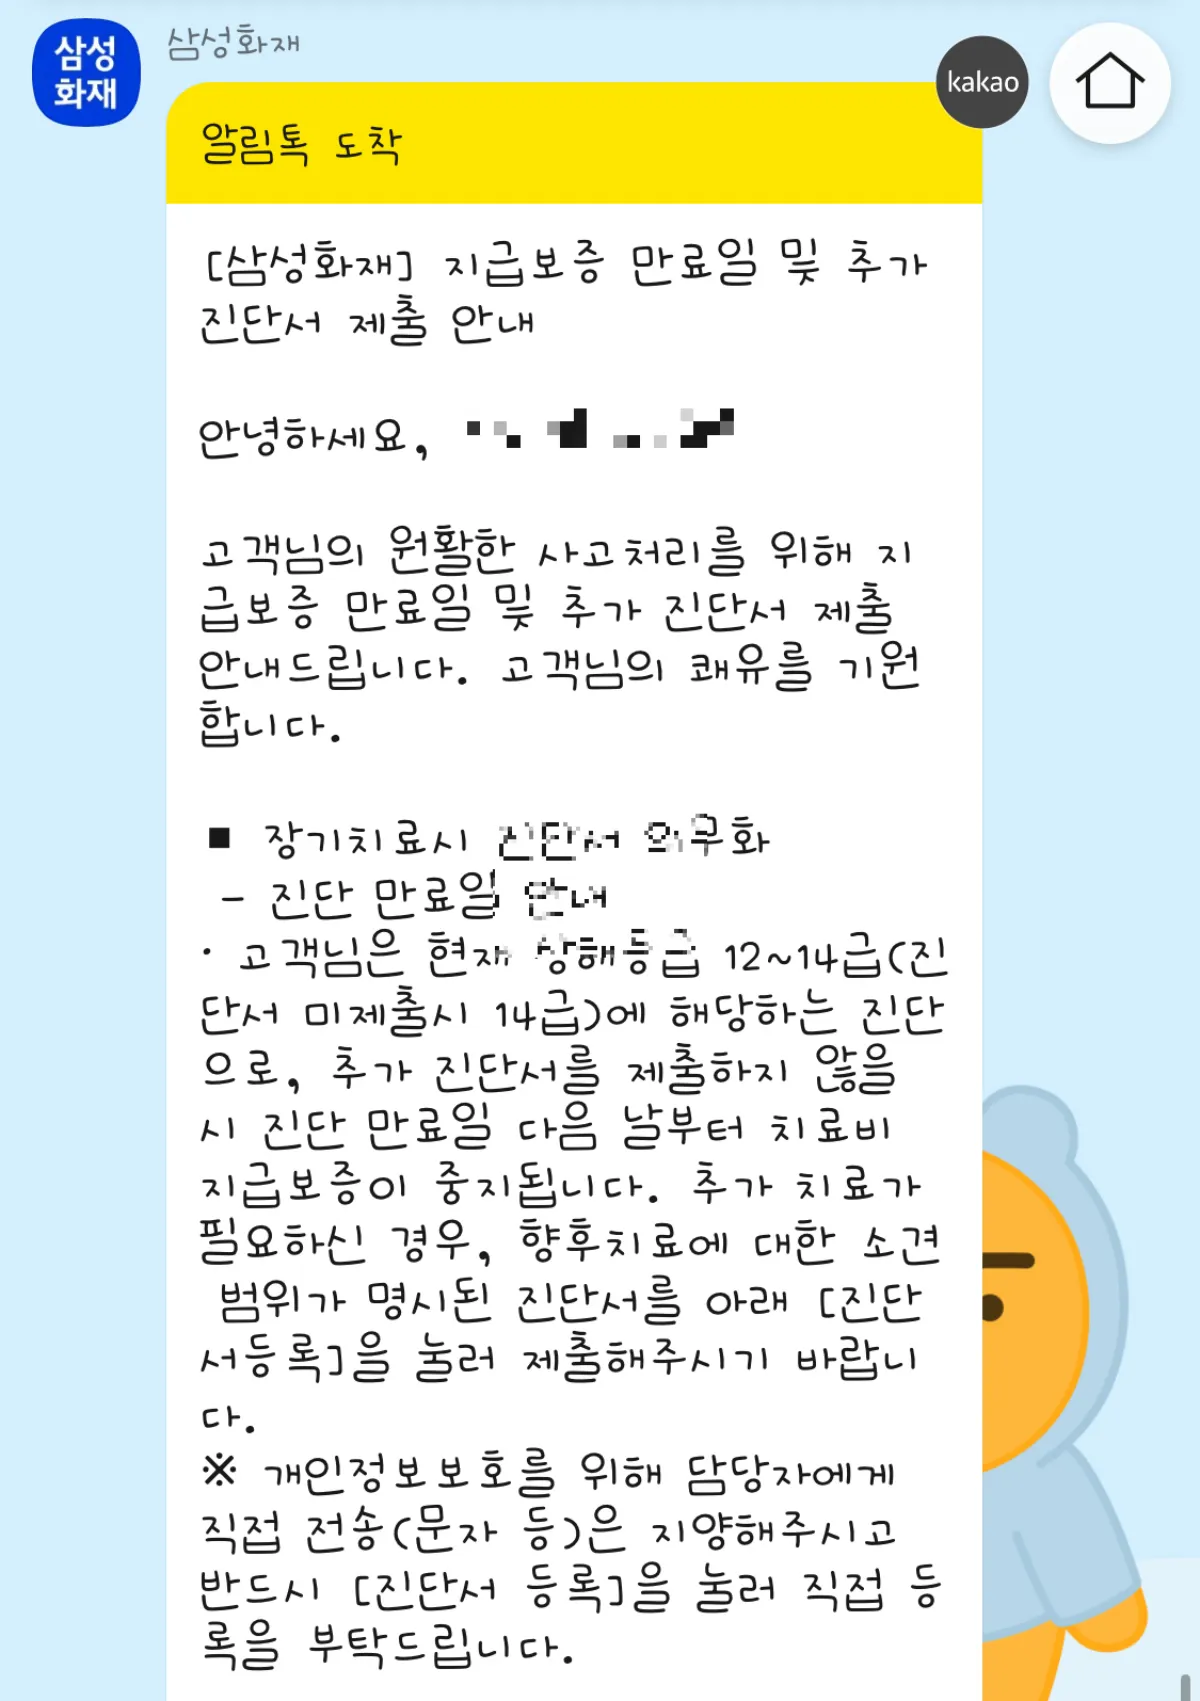 삼성
화재
삼성화재
kakao
알림톡 도착
[삼성화재] 지급보증 만료일 및 추가
진단서 제출 안내
안녕하세요,
고객님의 원활한 사고처리를 위해 지
급보증 만료일 및 추가 진단서 제출
안내드립니다. 고객님의 쾌유를 기원
합니다.
■ 장기치료시 진단서 의무화
- 진단 만료일 안내
· 고객님은 현재 상해등급 12~14급(진
단서 미제출시 14급)에 해당하는 진단
으로, 추가 진단서를 제출하지 않을
시 진단 만료일 다음 날부터 치료비
지급보증이 중지됩니다. 추가 치료가
필요하신 경우, 향후치료에 대한 소견
범위가 명시된 진단서를 아래 [진단
서등록]을 눌러 제출해주시기 바랍니
다.
※ 개인정보보호를 위해 담당자에게
직접 전송(문자 등)은 지양해주시고
반드시 [진단서 등록]을 눌러 직접 등
록을 부탁드립니다.